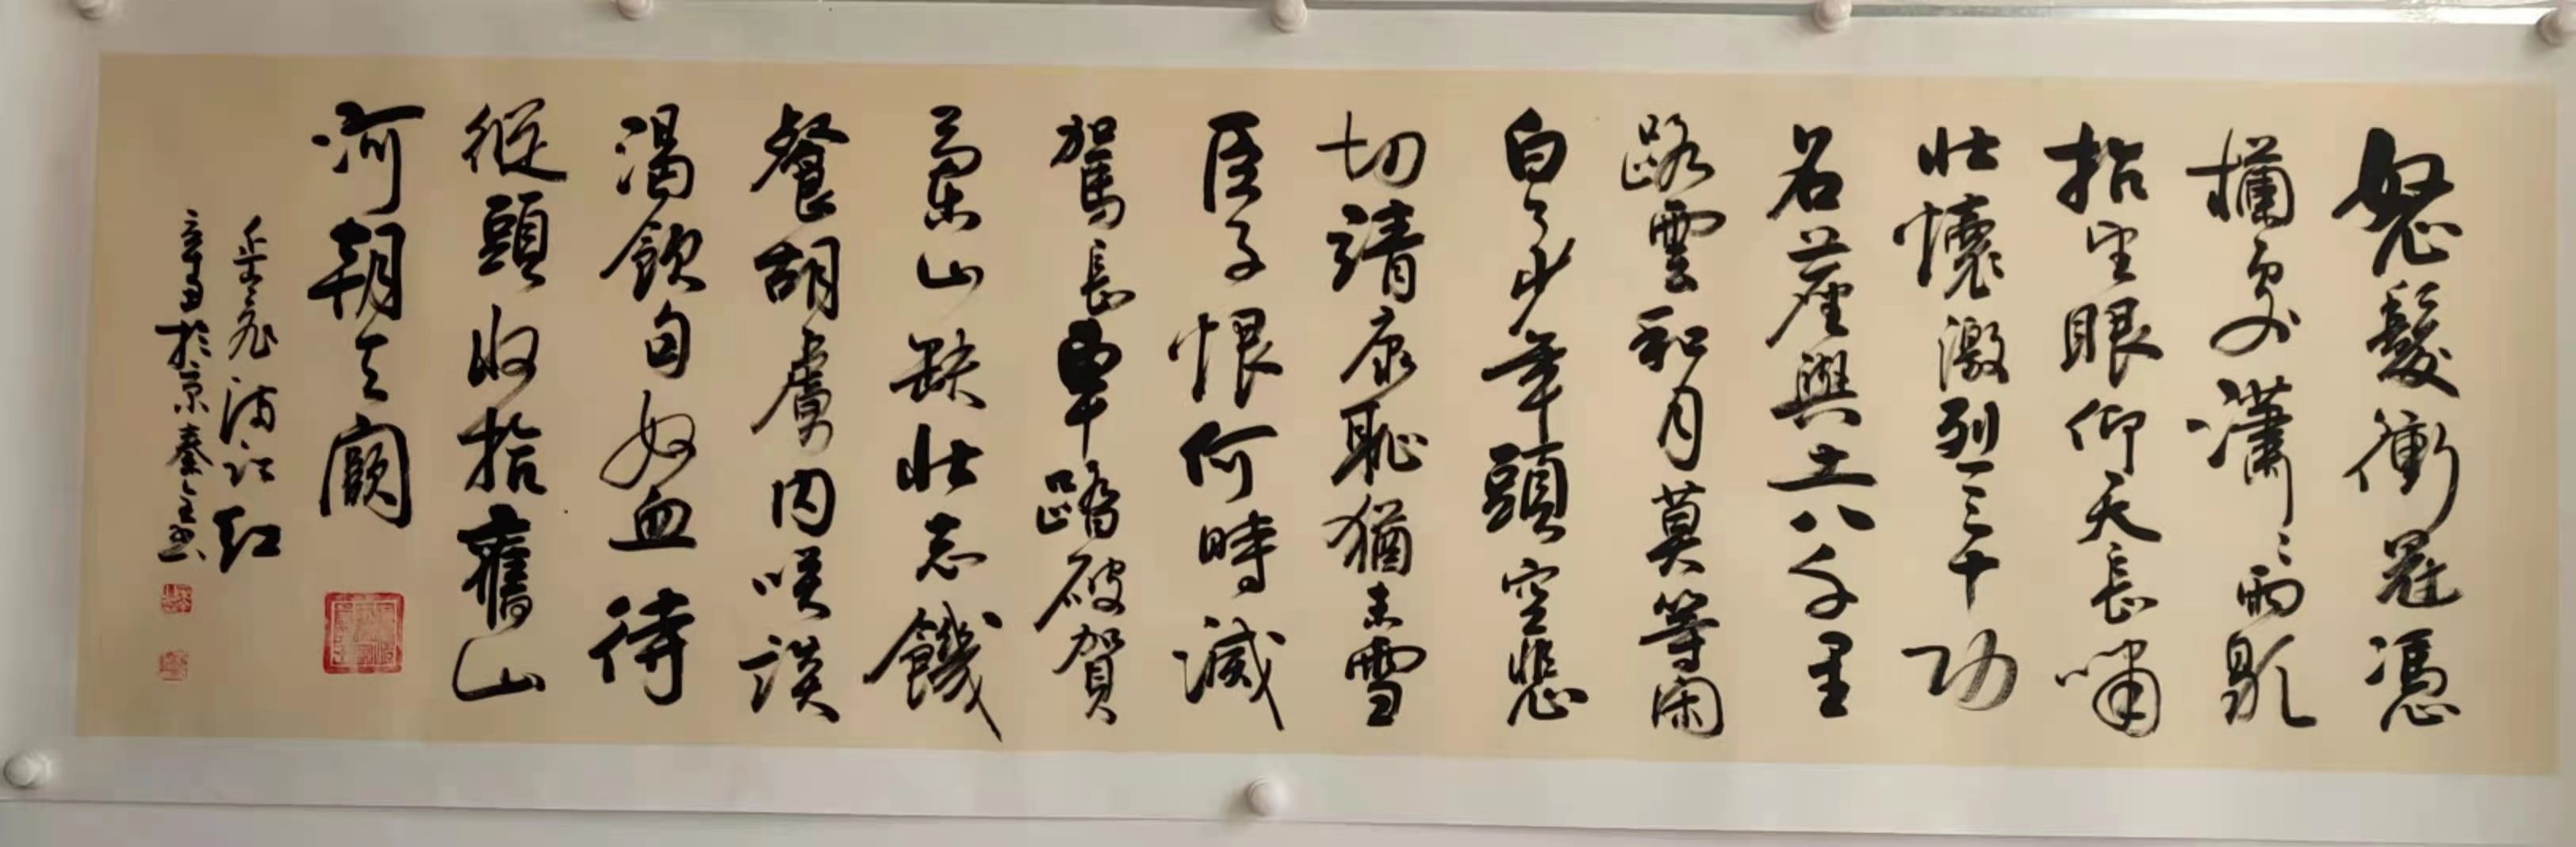 怒髮衝冠憑
欄處瀟瀟雨歇
抬望眼仰天長嘯
壯懷激列三十功
名塵與土八千里
路雲和月莫等闲
白了少年頭空悲
切靖康恥猶未雪
臣子恨何時滅
駕長車踏破賀
蘭山缺壯志饑
餐胡虜肉咲談
渴飲匈奴血待
從頭收拾舊山
河朝天闕
岳飛滿江紅
辛丑於京秦書